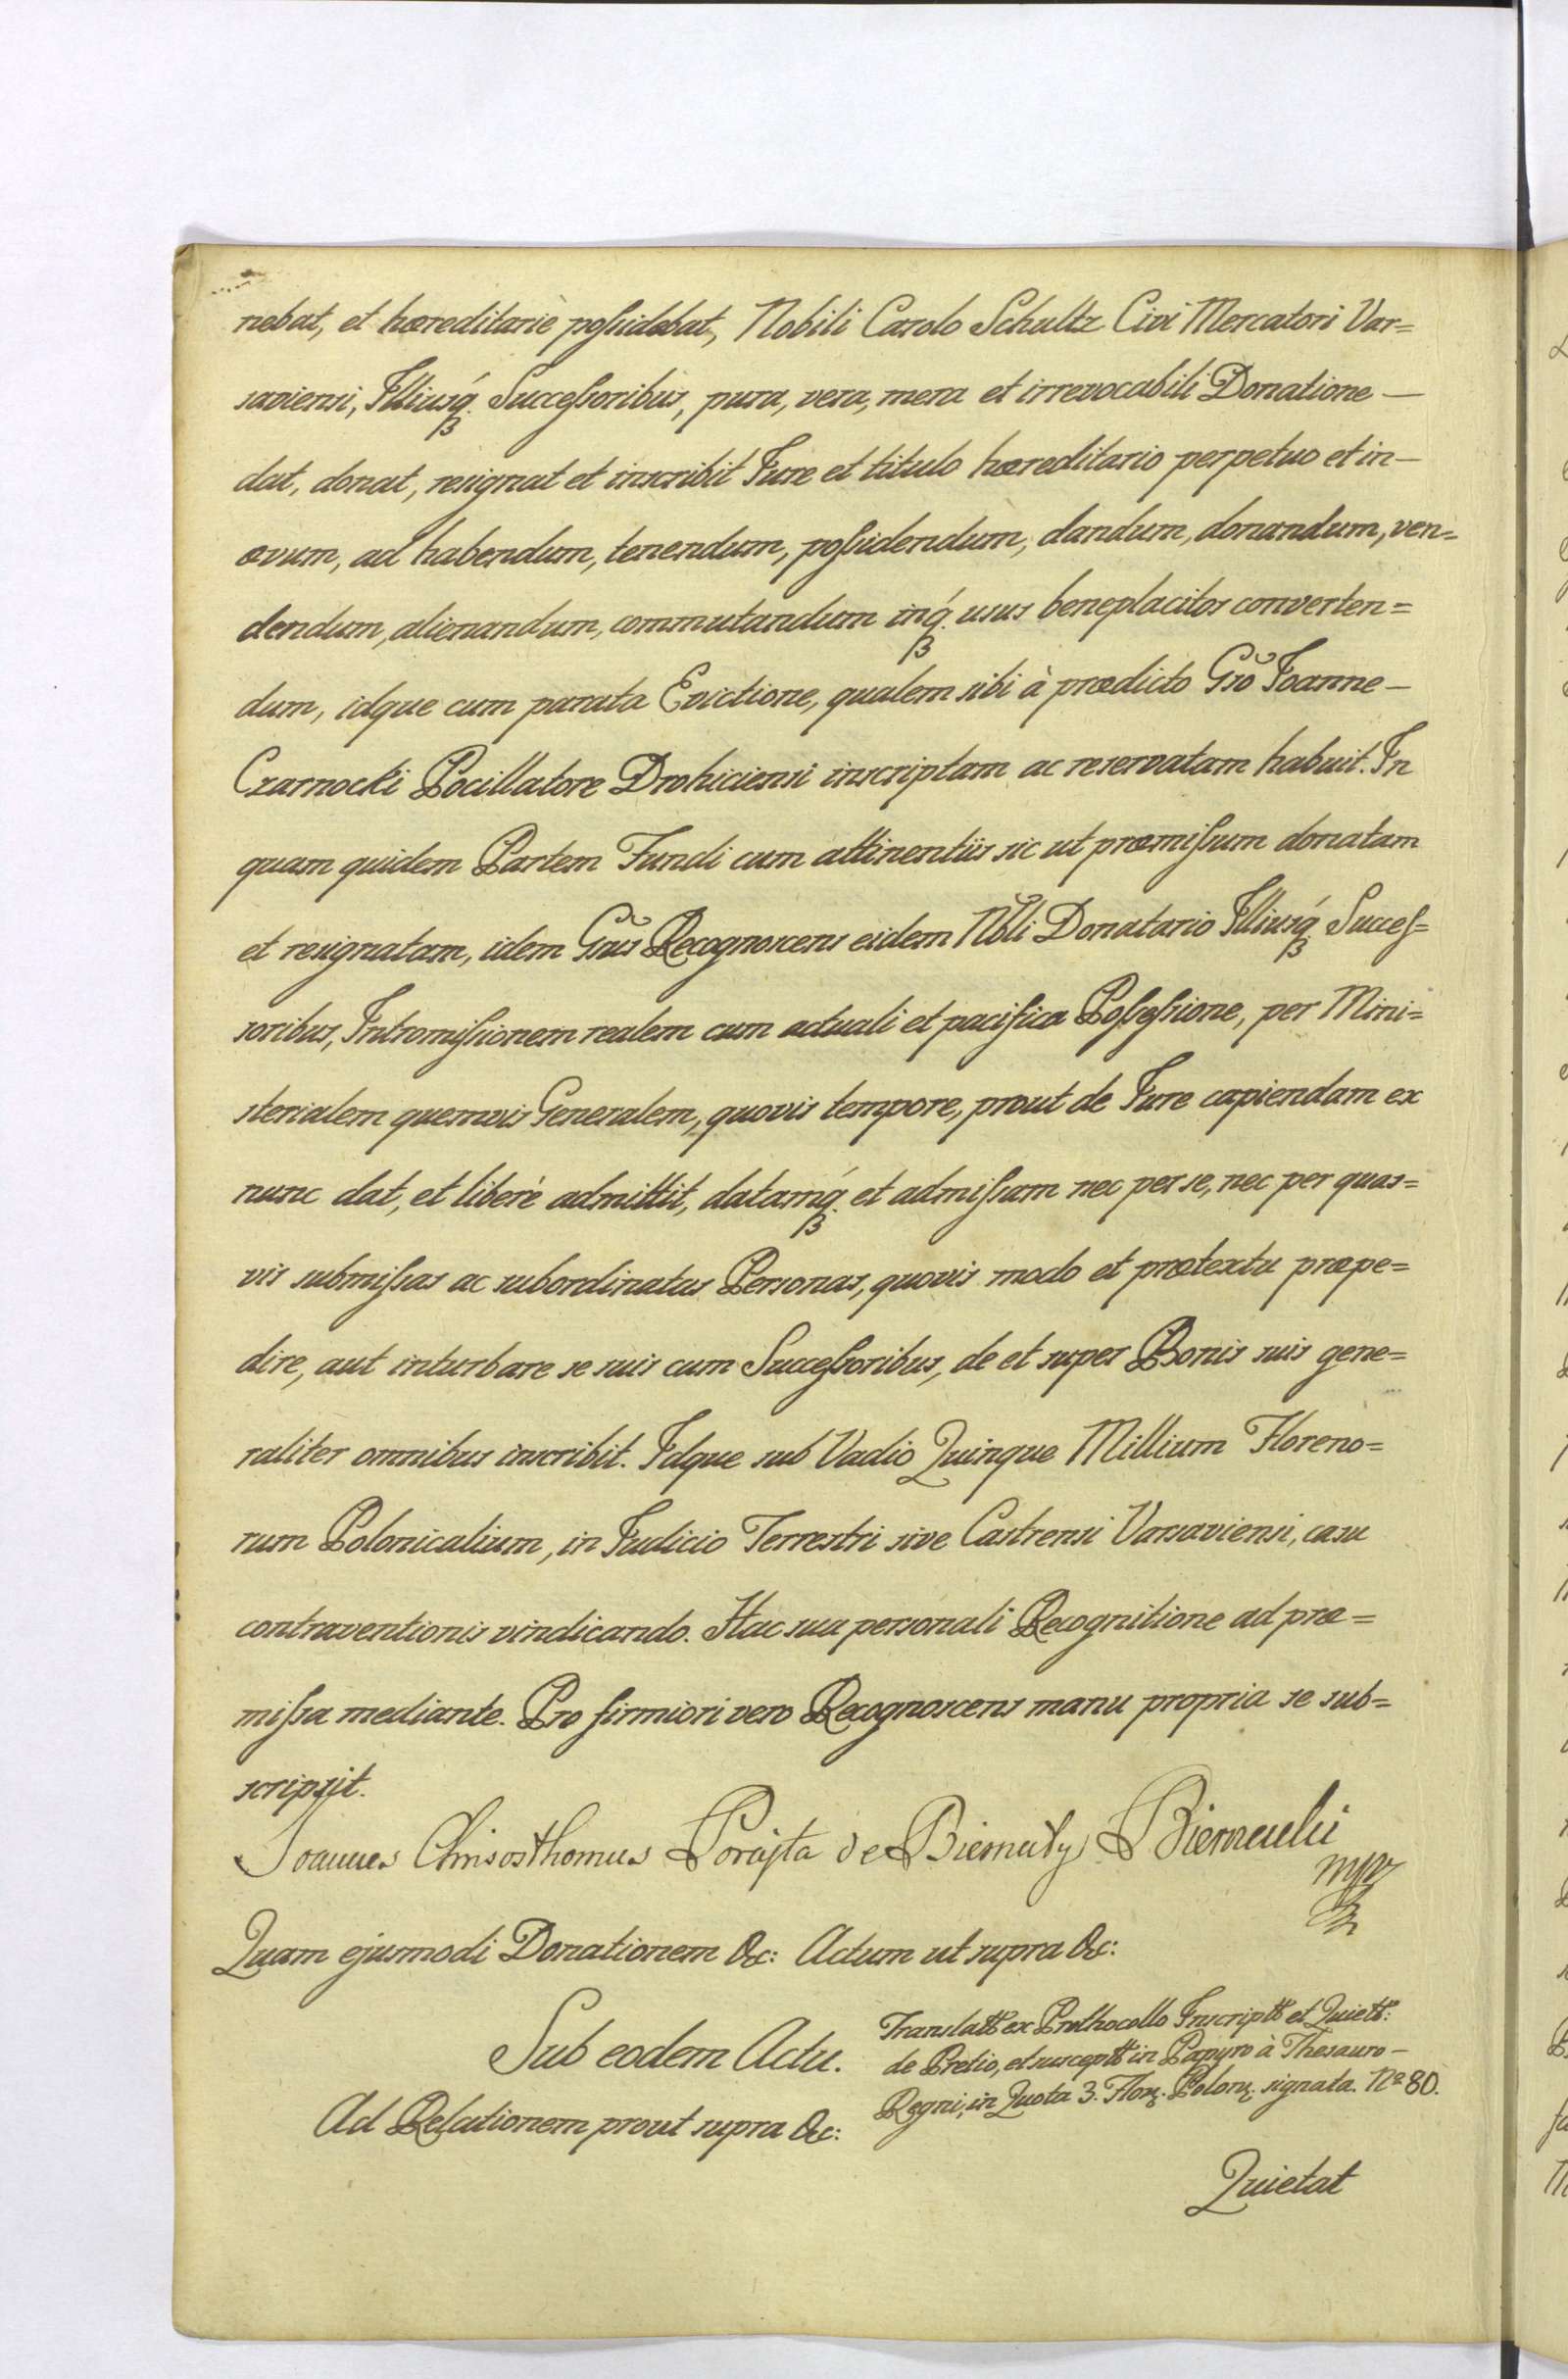 nebat, et hæreditariè poſsidebat, Nobili Carolo Schultz Civi Mercatori Var=
saviensi, Illiusq́ꝫ Succeſsoribus, pura, vera, mera et irrevocabili Donatione —
dat, donat, resignat et inscribit Jure et titulo hæreditario perpetuo et in—
ævum, ad habendum, tenendum, poſsidendum, dandum, donandum, ven=
dendum, alienandum, commutandum inq́ꝫ usus beneplacitos converten=
dum, idque cum parata Evictione, qualem sibi à prædicto Gso Joanne —
Czarnocki Pocillatore Drohiciensi inscriptam ac reservatam habuit. In
quam quidem Partem Fundi cum attinentiis sic ut præmiſsum donatam
et resignatam, idem Gsus Recognoscens eidem Nbli Donatario Illiusq́ꝫ Succeſ=
soribus, Intromiſsionem realem cum actuali et pacifica Poſseſsione, per Mini=
sterialem quemvis Generalem, quovis tempore, prout de Jure capiendam ex
nunc dat, et liberè admittit, datamq́ꝫ et admiſsam nec per se, nec per quas=
vis submiſsas ac subordinatas Personas, quovis modo et prætextu præpe=
dire, aut inturbare se suis cum Succeſsoribus, de et super Bonis suis gene=
raliter omnibus inscribit. Idque sub Vadio Quinque Millium Floreno=
rum Polonicalium, in Judicio Terrestri sive Castrensi Varsaviensi, casu
contraventionis vindicando. Hac sua personali Recognitione ad præ=
miſsa mediante. Pro firmiori vero Recognoscens manu propria se sub=
scripsit.
Joannes Chrisosthomus Porajta de Biernaty Biernacki
mpp
Quam ejusmodi Donationem &c: Actum ut supra &c:
Sub eodem Actu.
Translatt ex Prothocollo Inscriptt et Quiett:
de Pretio, et susceptt in Papyro à Thesauro —
Regni, in Quota 3. Floꝝ. Poloꝝ. signata. Nº 80.
Ad Relationem prout supra &c:
Quietat